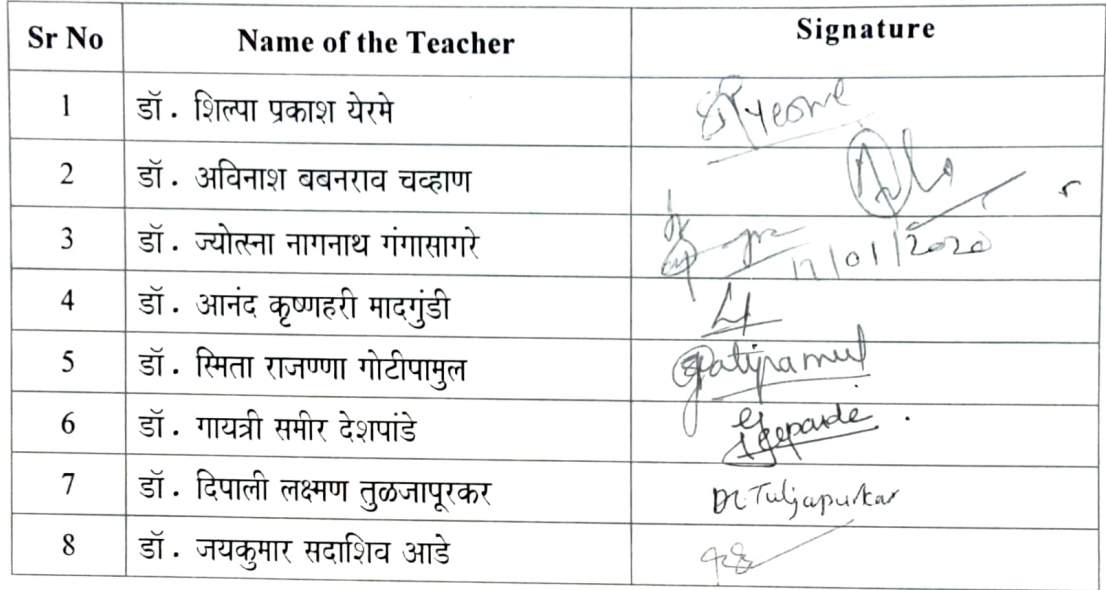 Sr No Name of the Teacher Signature
1 डॉ. शिल्पा प्रकाश येरमे
2 डॉ. अविनाश बबनराव चव्हाण
3 डॉ. ज्योत्स्ना नागनाथ गंगासागरे 17/01/2020
4 डॉ. आनंद कृष्णहरी मादगुंडी
5 डॉ. स्मिता राजण्णा गोटीपामुल
6 डॉ. गायत्री समीर देशपांडे
7 डॉ. दिपाली लक्ष्मण तुळजापूरकर Tuljapurkar
8 डॉ. जयकुमार सदाशिव आडे